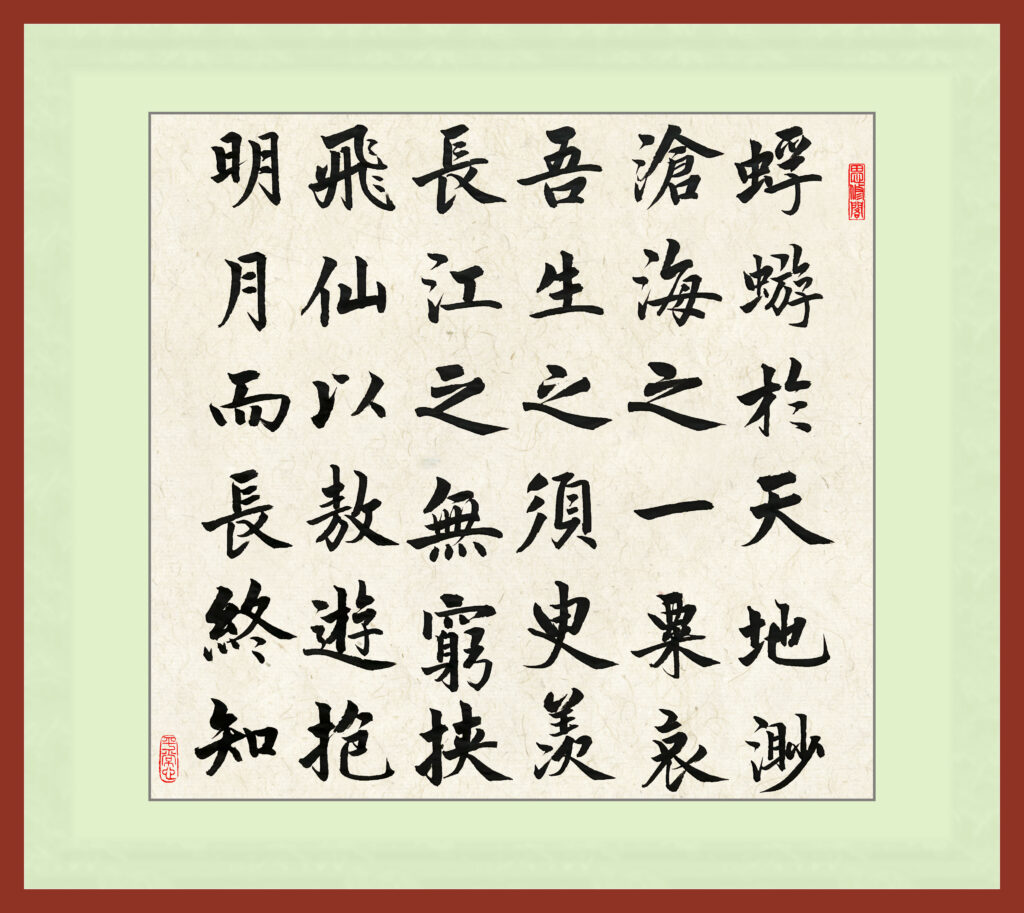 思修閣
蜉蝣於天地渺
滄海之一粟哀
吾生之須臾羨
長江之無窮挾
飛仙以敖遊抱
明月而長終知